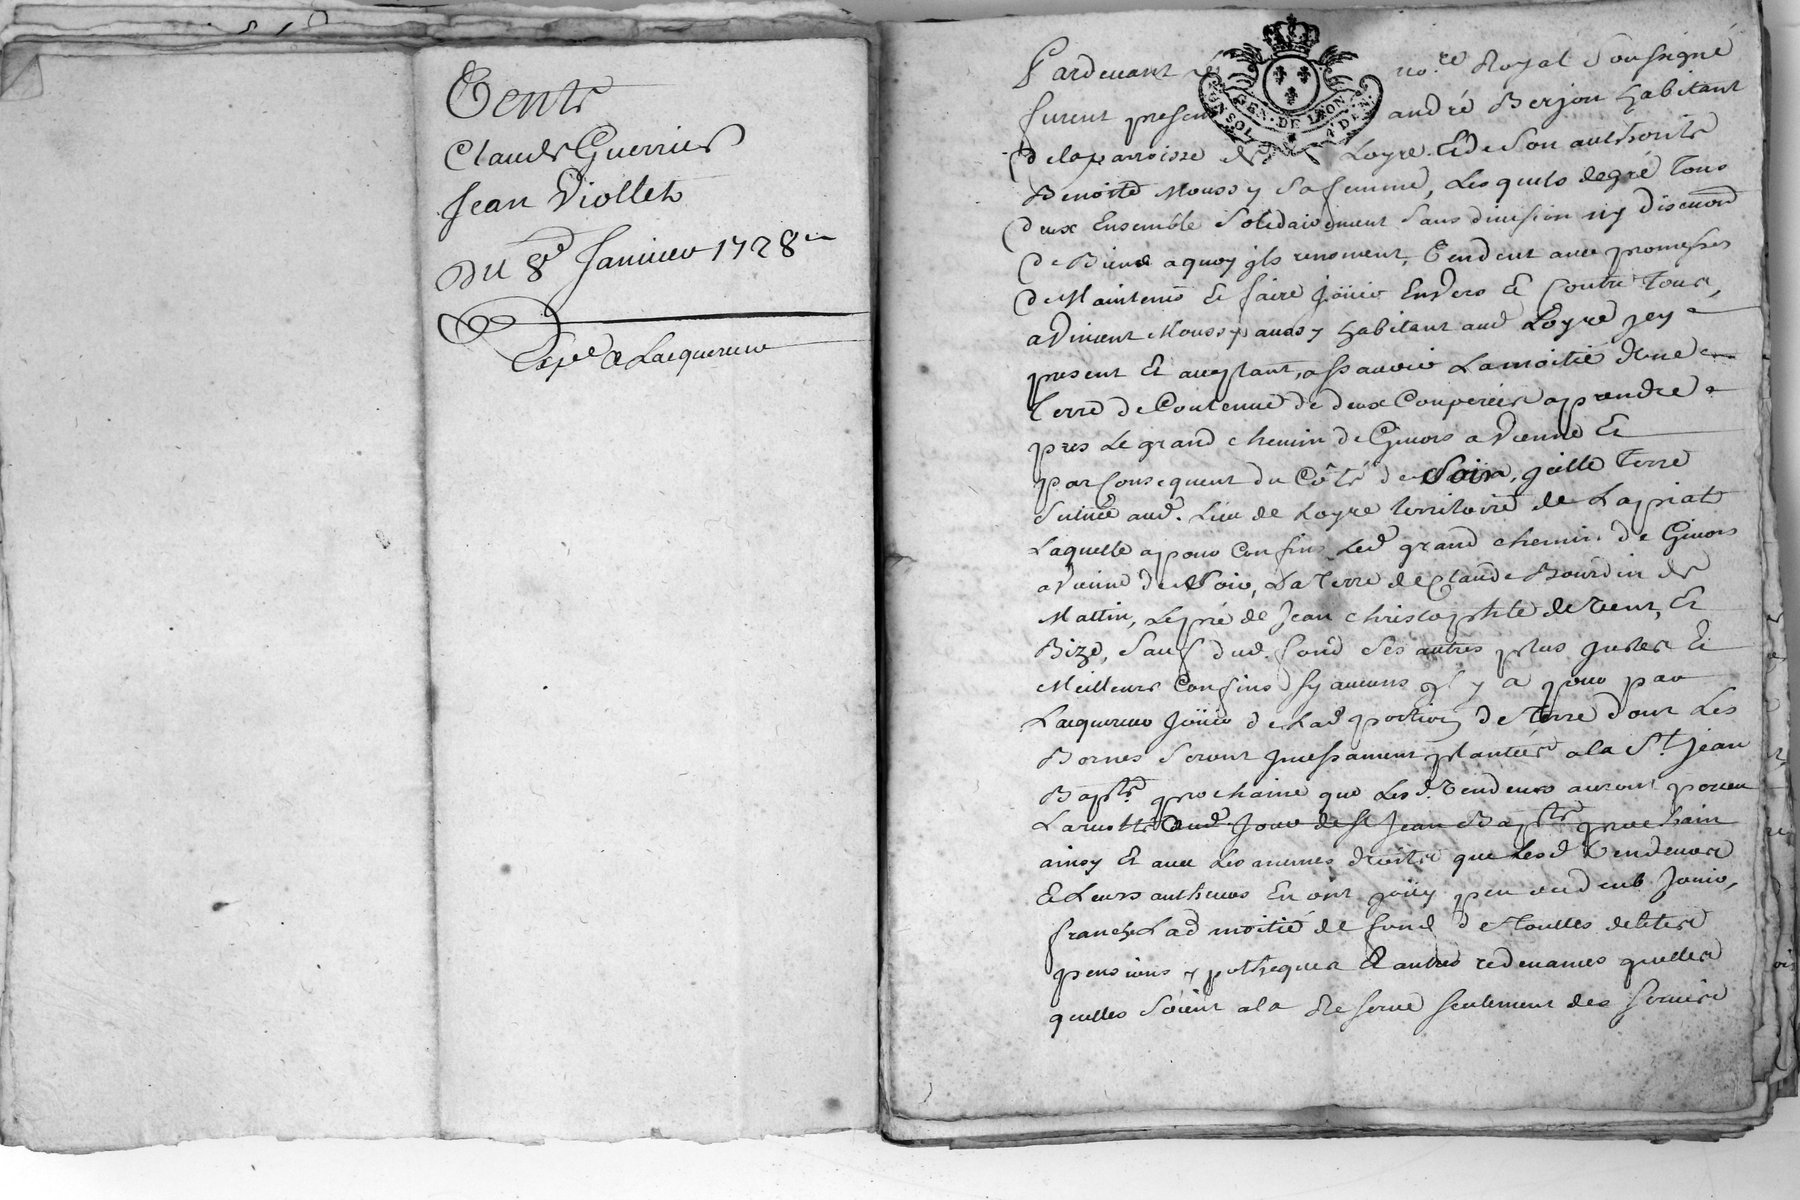 Vente
Claude Guerrier
Jean Viollet
Du 8e Janvier 1728
Expé a Lacquereur
Pardevant le no.re Royal Soussigné
furent presens andré Berjon habitant
de la parroisse de Loyre Et de Son authorité
Benoite Moussy Sa femme, Lesquels de gré tous
deux Ensemble Solidairement Sans division ny discution
de Biens a quoy ils renoncent, Vendent avec promesses
de Maintenir Et faire Joüir Envers Et Contre Tous,
a Vincent Moussy aussy habitant aud Loyre jcy
present Et acceptant, assavoir La moitié dune
Terre de Contenue de deux Couperées a prendre
pres Le grand chemin de Givors a Vienne Et
par Consequent du Côté de Soir, jcelle Terre
Scituée aud. Lieu de Loyre territoire de Lapriat
Laquelle a pour Confins Led grand chemin de Givors
a Vienne de Soir, La Terre de Claude Bourdin de
Mattin, Le pré de Jean christophle de Vent, Et
Bize, Sauf dud. fond Ses autres plus justes Et
Meilleurs Confins Sy aucuns il y a pour par
Lacquereur Joüir de Lad portion de Terre dont Les
Bornes Seront jncessament plantées a la St. Jean
Bapte. prochaine que Lesd. Vendeurs auront
Jour de St Jean Bapte prochain
ainsy Et avec Les memes droits que Lesd Vendeurs
Et Leurs autheurs En ont joüy peu ou deub Jouir,
franche Lad moitié de fond de Toutes debtes
pensions ypotheques Et autres redevances quelles
quelles Soient a la Reserve seulement des Servis
GEN. DE LION